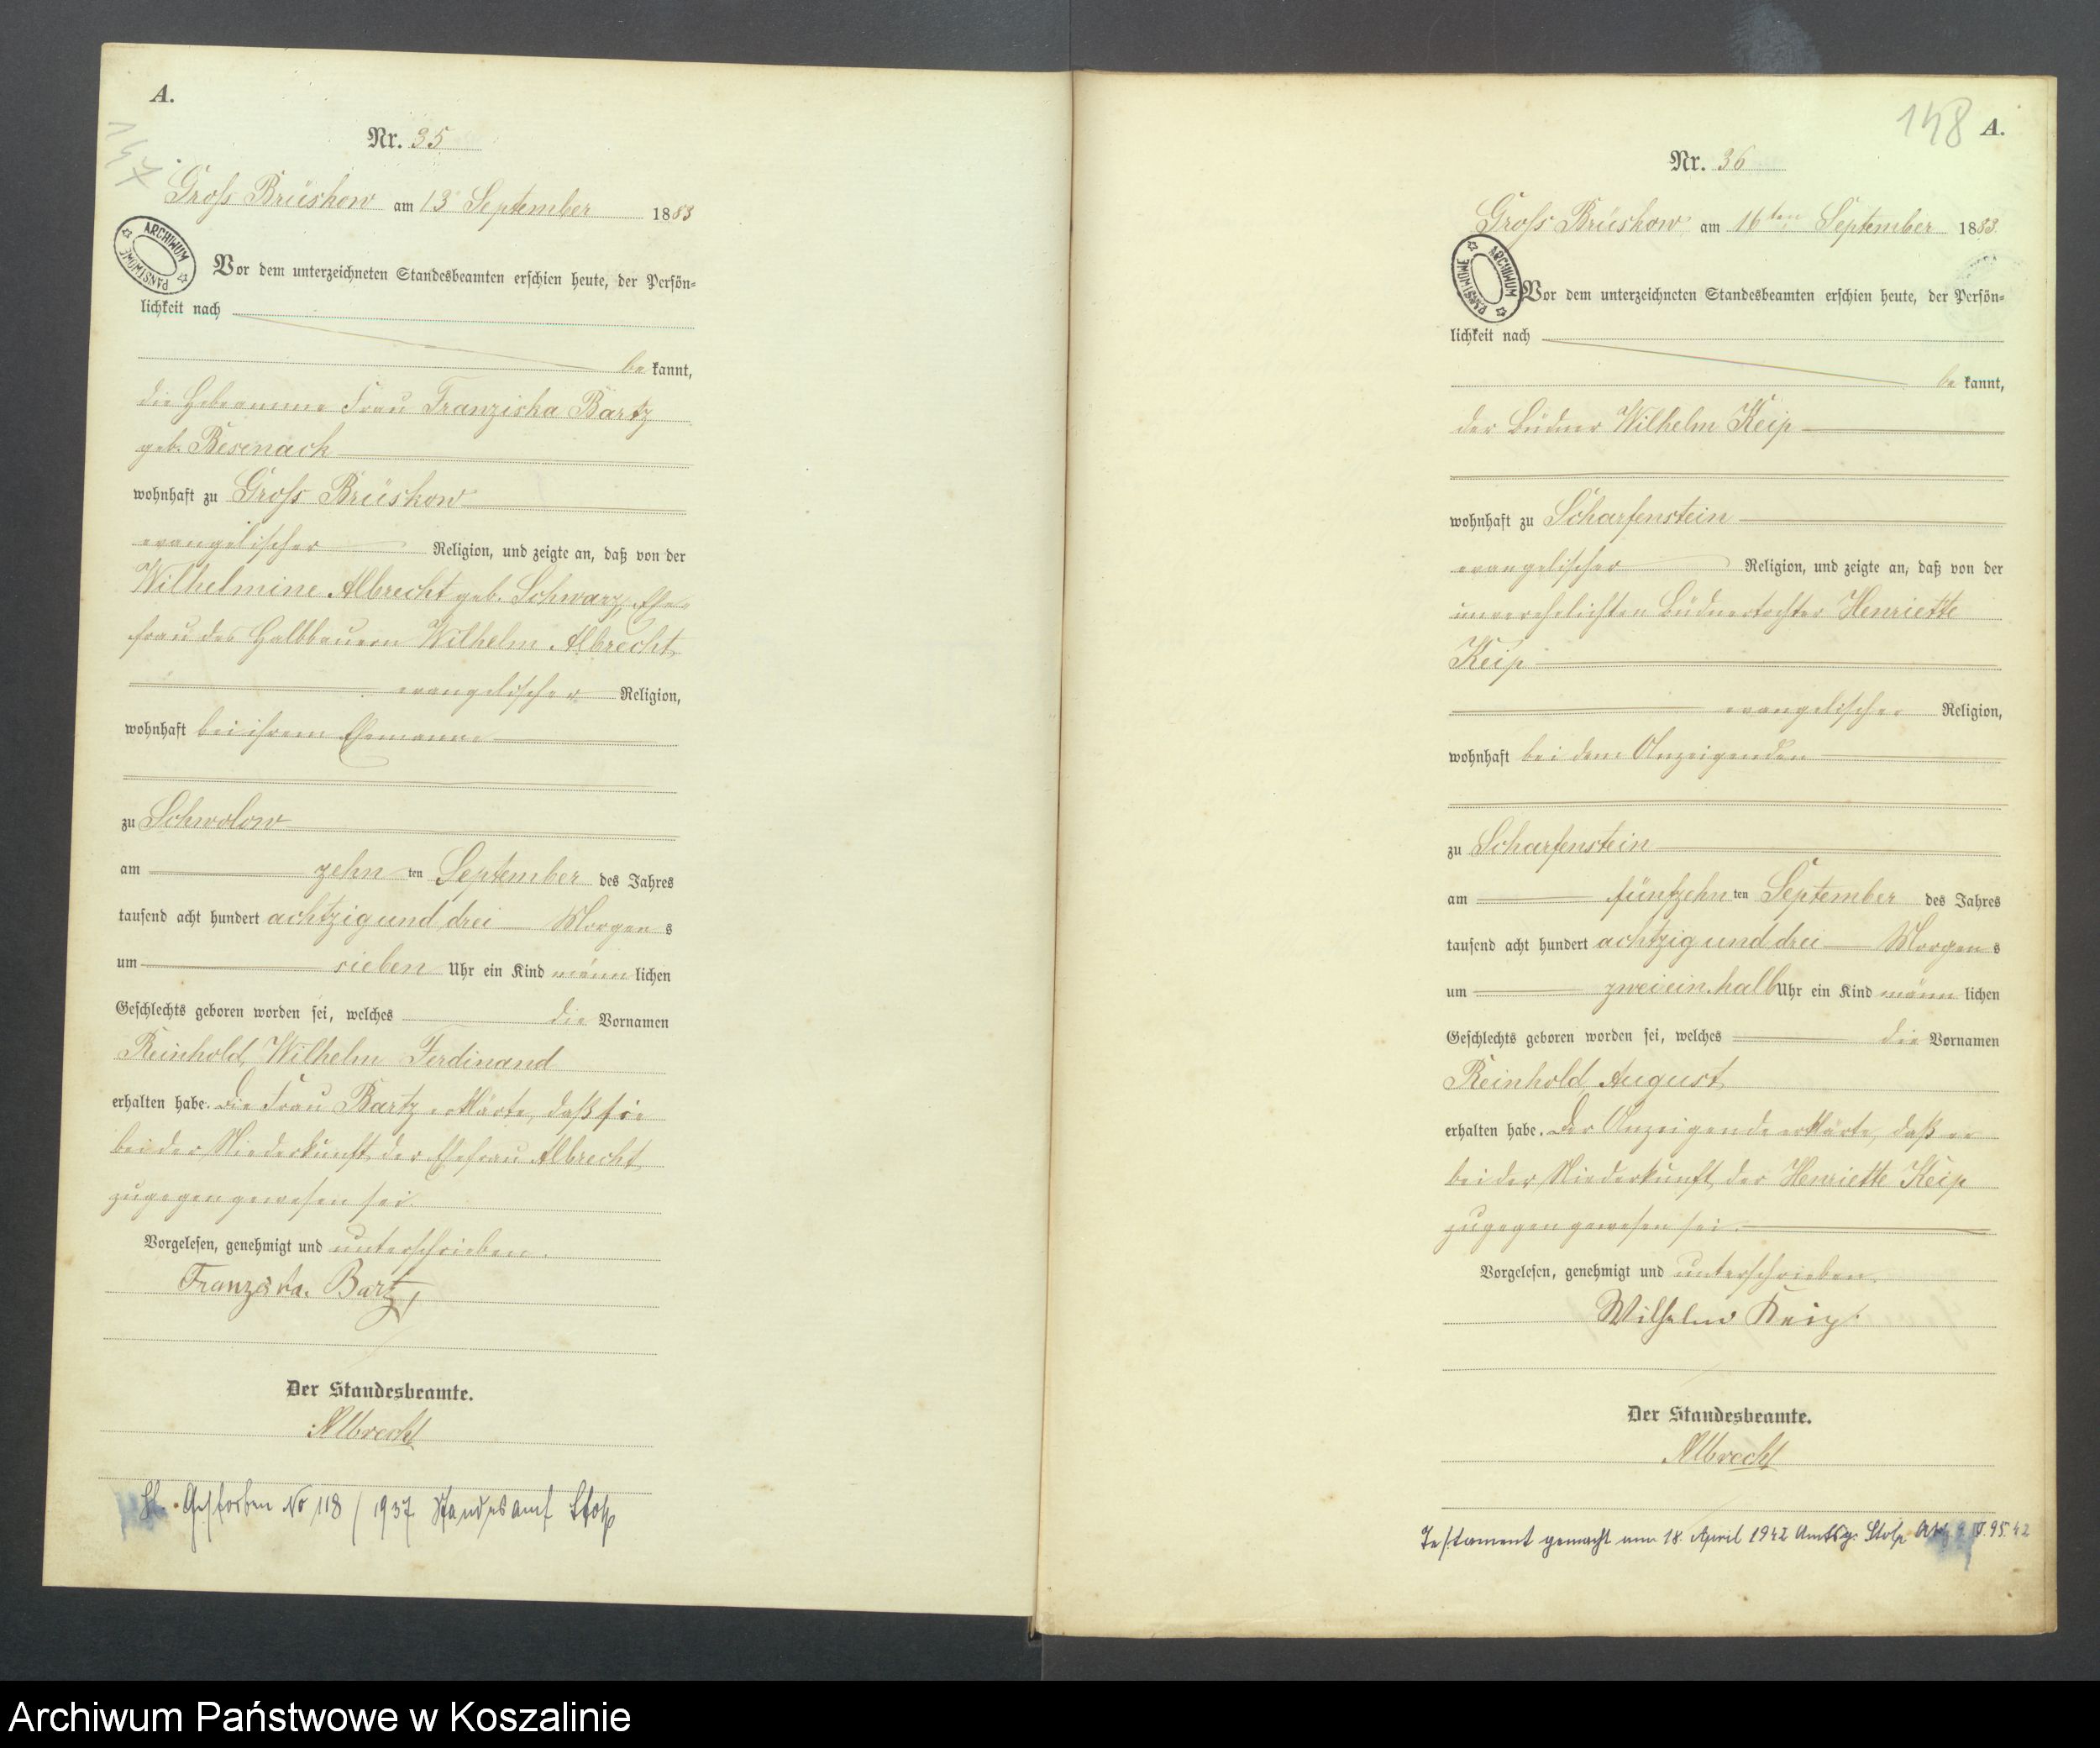 A.
147
Nr. 35
Gross Brüskow am 13 September 1883
ARCHIWUM PAŃSTWOWE
Vor dem unterzeichneten Standesbeamten erschien heute, der Persön=
lichkeit nach
be kannt,
die Hebeamme Frau Franziska Bartz
geb. Besenach
wohnhaft zu Gross Brüskow
evangelischer Religion, und zeigte an, daß von der
Wilhelmine Albrecht geb. Schwarz, Ehe=
frau des Halbbauern Wilhelm Albrecht
evangelischer Religion,
wohnhaft bei ihrem Ehemanne
zu Schwolow
am zehn ten September des Jahres
tausend acht hundert achtzig und drei Morgen s
um sieben Uhr ein Kind männ lichen
Geschlechts geboren worden sei, welches die Vornamen
Reinhold, Wilhelm Ferdinand
erhalten habe. Die Frau Bartz erklärte, daß sie
bei der Niederkunft der Ehefrau Albrecht
zugegen gewesen sei.
Vorgelesen, genehmigt und unterschrieben.
Franziska Bartz
Der Standesbeamte.
Albrecht
Gestorben No 118 / 1937 Standesamt Stolp
148 A.
Nr. 36
Gross Brüskow am 16ten September 1883.
ARCHIWUM PAŃSTWOWE
Vor dem unterzeichneten Standesbeamten erschien heute, der Persön=
lichkeit nach
be kannt,
der Büdner Wilhelm Keip
wohnhaft zu Scharfenstein
evangelischer Religion, und zeigte an, daß von der
unverehelichten Büdnertochter Henriette
Keip
evangelischer Religion,
wohnhaft bei dem Anzeigenden
zu Scharfenstein
am fünfzehn ten September des Jahres
tausend acht hundert achtzig und drei Morgen s
um zweieinhalb Uhr ein Kind männ lichen
Geschlechts geboren worden sei, welches die Vornamen
Reinhold, August
erhalten habe. Der Anzeigende erklärte, daß er
bei der Niederkunft der Henriette Keip
zugegen gewesen sei.
Vorgelesen, genehmigt und unterschrieben.
Wilhelm Keip
Der Standesbeamte.
Albrecht
Testament gemacht am 18. April 1942 Amtsg. Stolp 95.42
Archiwum Państwowe w Koszalinie